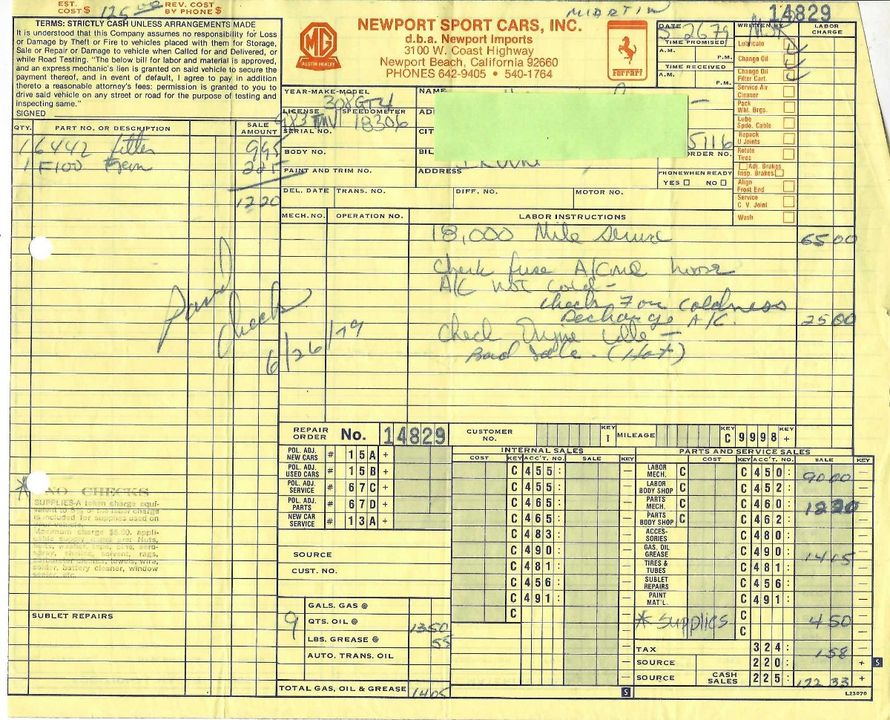 EST. COST $ 125.00 REV. COST BY PHONE $
TERMS: STRICTLY CASH UNLESS ARRANGEMENTS MADE
It is understood that this Company assumes no responsibility for Loss
or Damage by Theft or Fire to vehicles placed with them for Storage,
Sale or Repair or Damage to vehicle when Called for and Delivered, or
while Road Testing. "The below bill for labor and material is approved,
and an express mechanic's lien is granted on said vehicle to secure the
payment thereof, and in event of default, I agree to pay in addition
thereto a reasonable attorney's fees: permission is granted to you to
drive said vehicle on any street or road for the purpose of testing and
inspecting same."
SIGNED
MG
AUSTIN HEALEY
MARTIN
NEWPORT SPORT CARS, INC.
d.b.a. Newport Imports
3100 W. Coast Highway
Newport Beach, California 92660
PHONES 642-9405 • 540-1764
Ferrari
14829
DATE 5-26-79
TIME PROMISED
A.M. P.M.
TIME RECEIVED
A.M. P.M.
ORDER NO.
5116
PHONE WHEN READY
YES NO
WRITTEN BY
LABOR CHARGE
Lubricate
Change Oil
Change Oil Filter Cart.
Service Air Cleaner
Pack Whl. Brgs.
Lube Spdo. Cable
Repack U Joints
Rotate Tires
Adj. Brakes
Insp. Brakes
Align Front End
Service C. V. Joint
Wash
YEAR-MAKE-MODEL
308 GT4
LICENSE SPEEDOMETER
18306
SERIAL NO.
BODY NO.
PAINT AND TRIM NO.
NAME
CIT
BIL
ADDRESS
DEL. DATE TRANS. NO. DIFF. NO. MOTOR NO.
QTY. PART NO. OR DESCRIPTION SALE AMOUNT
1 6442 filter 995
1 F100 225
1220
MECH. NO. OPERATION NO. LABOR INSTRUCTIONS
18,000 Mile Service 65 00
Check fuse A/C and
A/C not cold -
Check For Coldness
Recharge A/C. 25 00
Check Engine idle -
Bad Idle. (Hot)
Paid
Check
6/26/79
* NO CHECKS
SUPPLIES-A token charge equivalent
SUBLET REPAIRS
REPAIR ORDER No. 14829
CUSTOMER NO. KEY I MILEAGE KEY C 9998 +
POL. ADJ. NEW CARS # 15A +
POL. ADJ. USED CARS # 15B +
POL. ADJ. SERVICE # 67C +
POL. ADJ. PARTS # 67D +
NEW CAR SERVICE # 13A +
SOURCE
CUST. NO.
GALS. GAS @
9 QTS. OIL @ 1350
LBS. GREASE @ 55
AUTO. TRANS. OIL
TOTAL GAS, OIL & GREASE 1405
INTERNAL SALES
COST KEY ACC'T. NO. SALE KEY
C 455:
C 455:
C 465:
C 465:
C 483:
C 490:
C 481:
C 456:
C 491:
C
S
PARTS AND SERVICE SALES
COST KEY ACC'T. NO. SALE KEY
LABOR MECH. C C 450: 9000
LABOR BODY SHOP C C 452:
PARTS MECH. C C 460: 1220
PARTS BODY SHOP C C 462:
ACCESSORIES C 480:
GAS, OIL GREASE C 490: 1415
TIRES & TUBES C 481:
SUBLET REPAIRS C 456:
PAINT MAT'L. C 491:
* Supplies C 450
C
TAX 324: 158
SOURCE 220: + S
SOURCE CASH SALES 225: 122 33 +
L23070